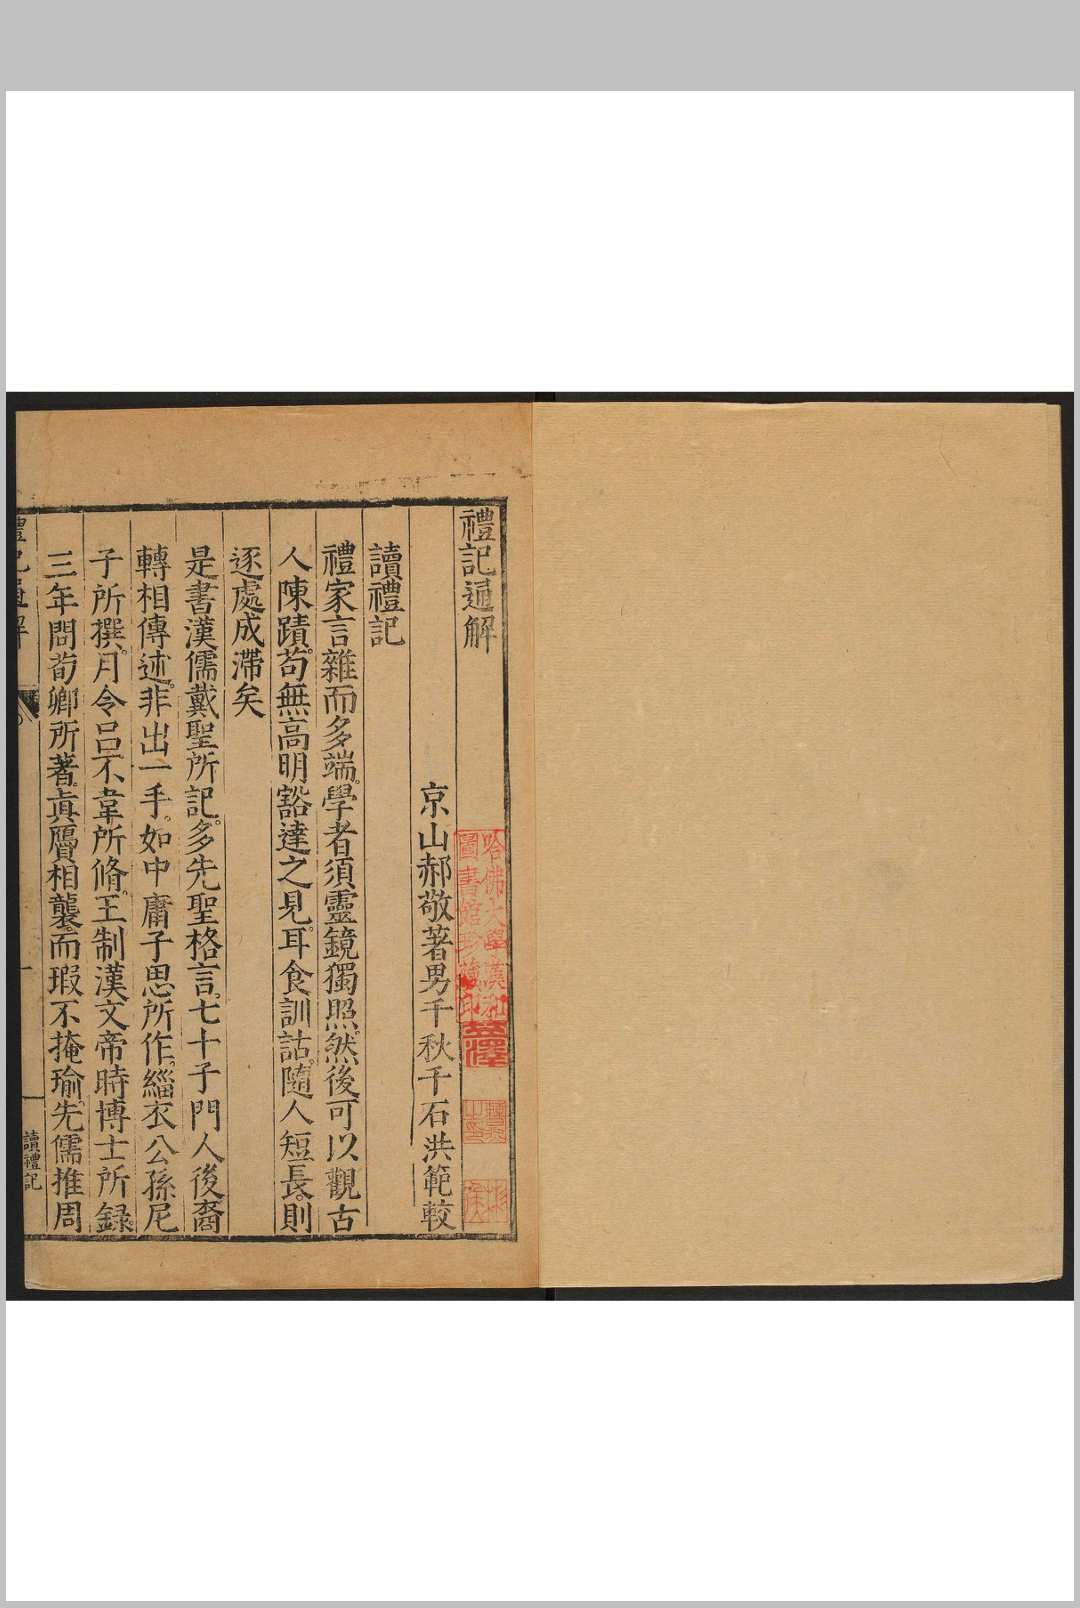 禮記通解
京山郝敬著男千秋千石洪範較
讀禮記
禮家言雜而多端。學者須靈鏡獨照。然後可以觀古
人陳蹟。茍無高明豁達之見。耳食訓詁。隨人短長。則
逐處成滯矣
是書漢儒戴聖所記。多先聖格言。七十子門人後裔
轉相傳述。非出一手。如中庸子思所作。緇衣公孫尼
子所撰。月令呂不韋所脩。王制漢文帝時博士所錄。
三年問荀卿所著。眞贋相襲。而瑕不掩瑜。先儒推周
禮記通解
讀禮記
哈佛大學漢和
圖書館珍藏印